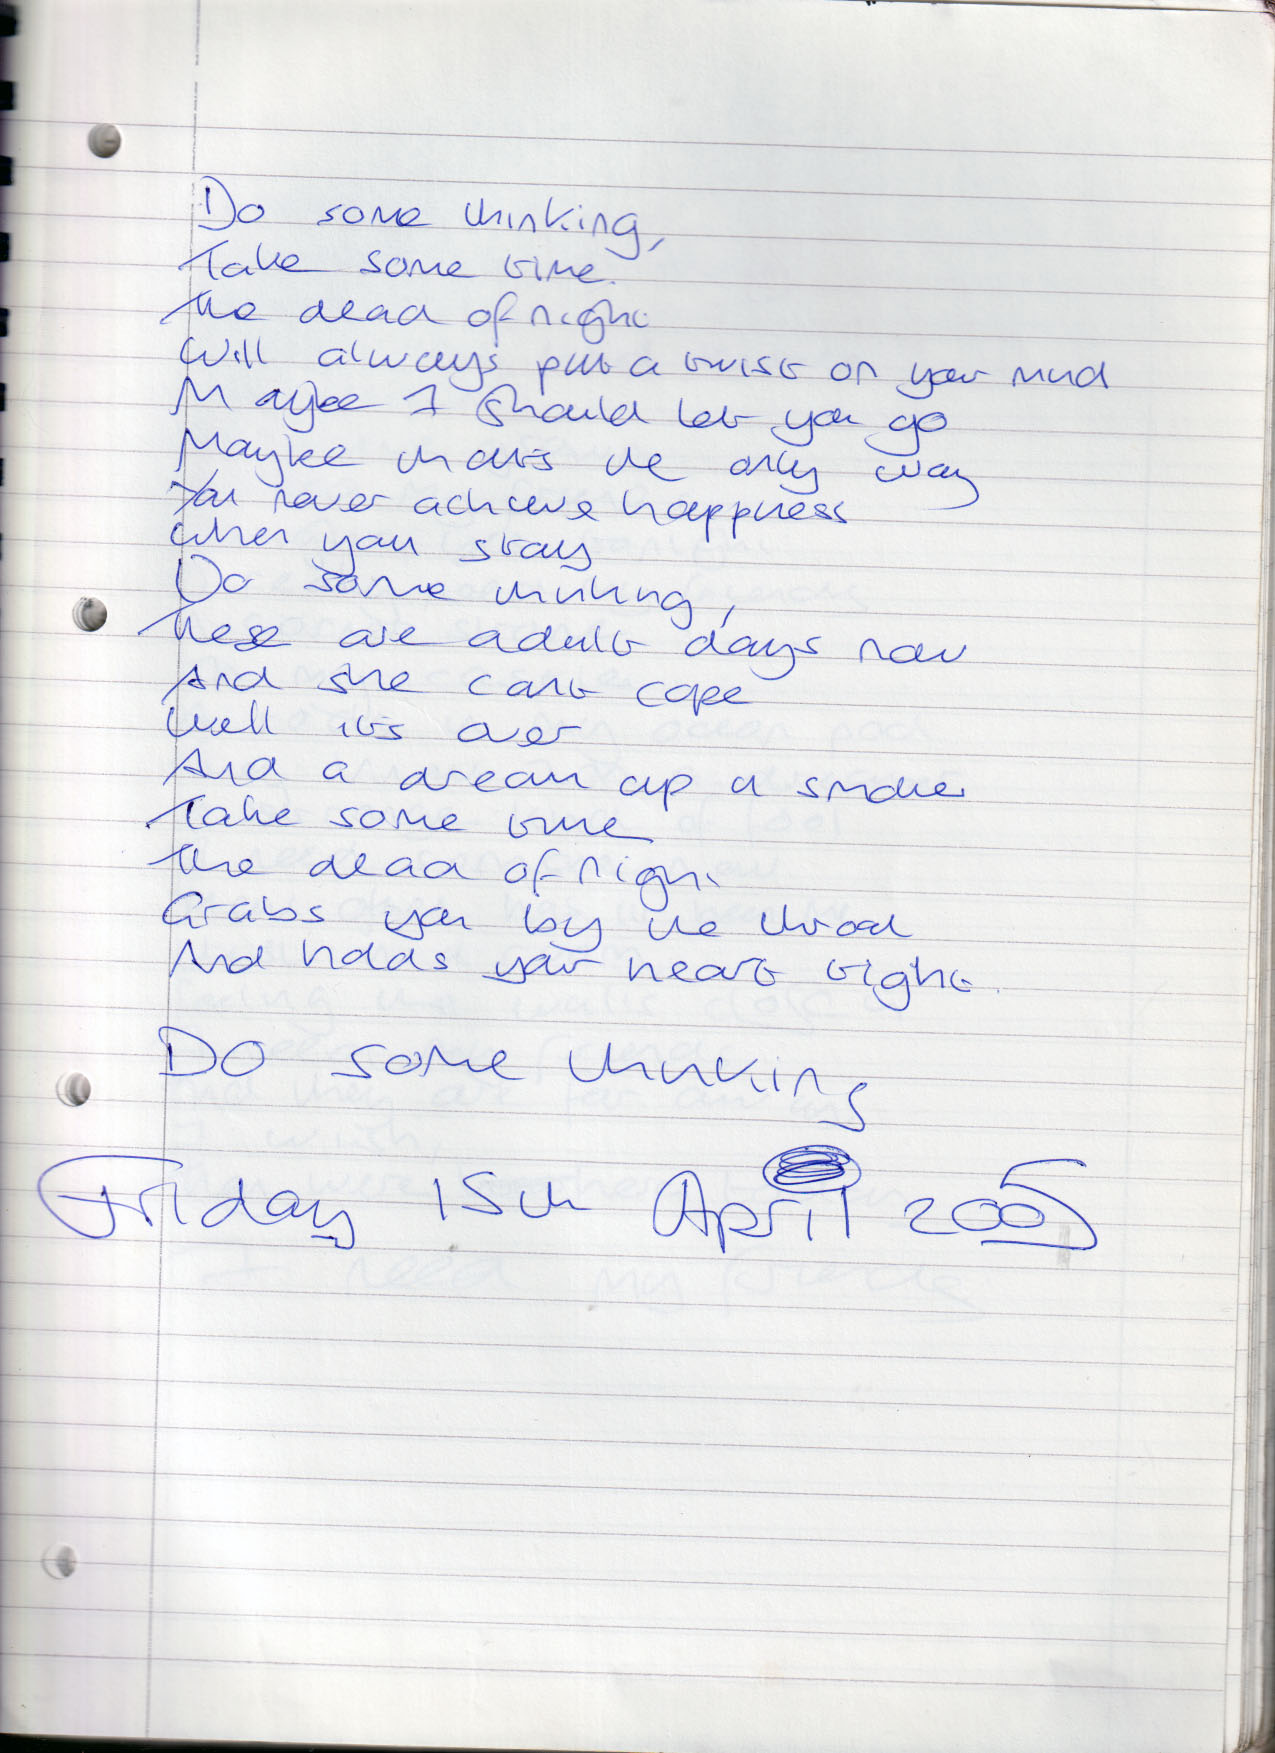 Do some thinking,
Take some time.
The dead of night
Will always put a twist on your mind
Maybe I should let you go
Maybe that's the only way
You never achieve happness
When you stay
Do some thinking,
These are adult days now
And she cant cope
Well it's over
And a dream up a smoke
Take some time
The dead of night
Grabs you by the throat
And holds your heart tight.
Do some thinking
Friday 15th April 2005
I need my friends